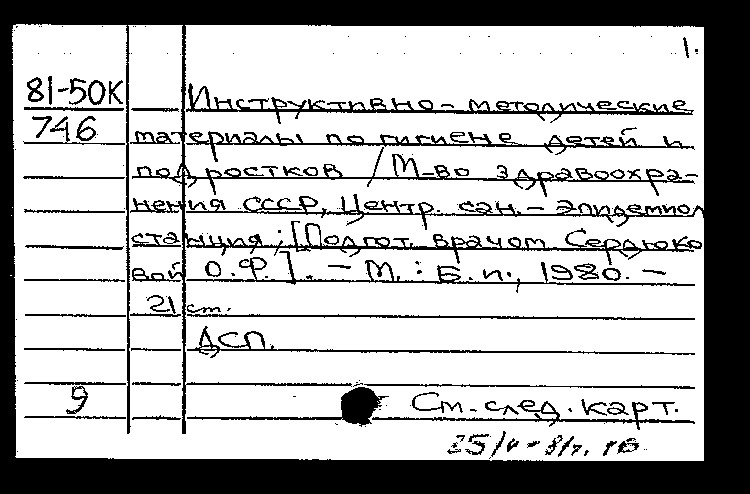 1.
81-50К Инструктивно-методические
746 материалы по гигиене детей и
подростков / М-во здравоохра-
нения СССР, Центр. сан.-эпидемиол
станция; [Подгот. врачом Сердюко
вой О.Ф.]. - М. : Б. и., 1980. -
21 ст.
ДСП.
9 См. след. карт.